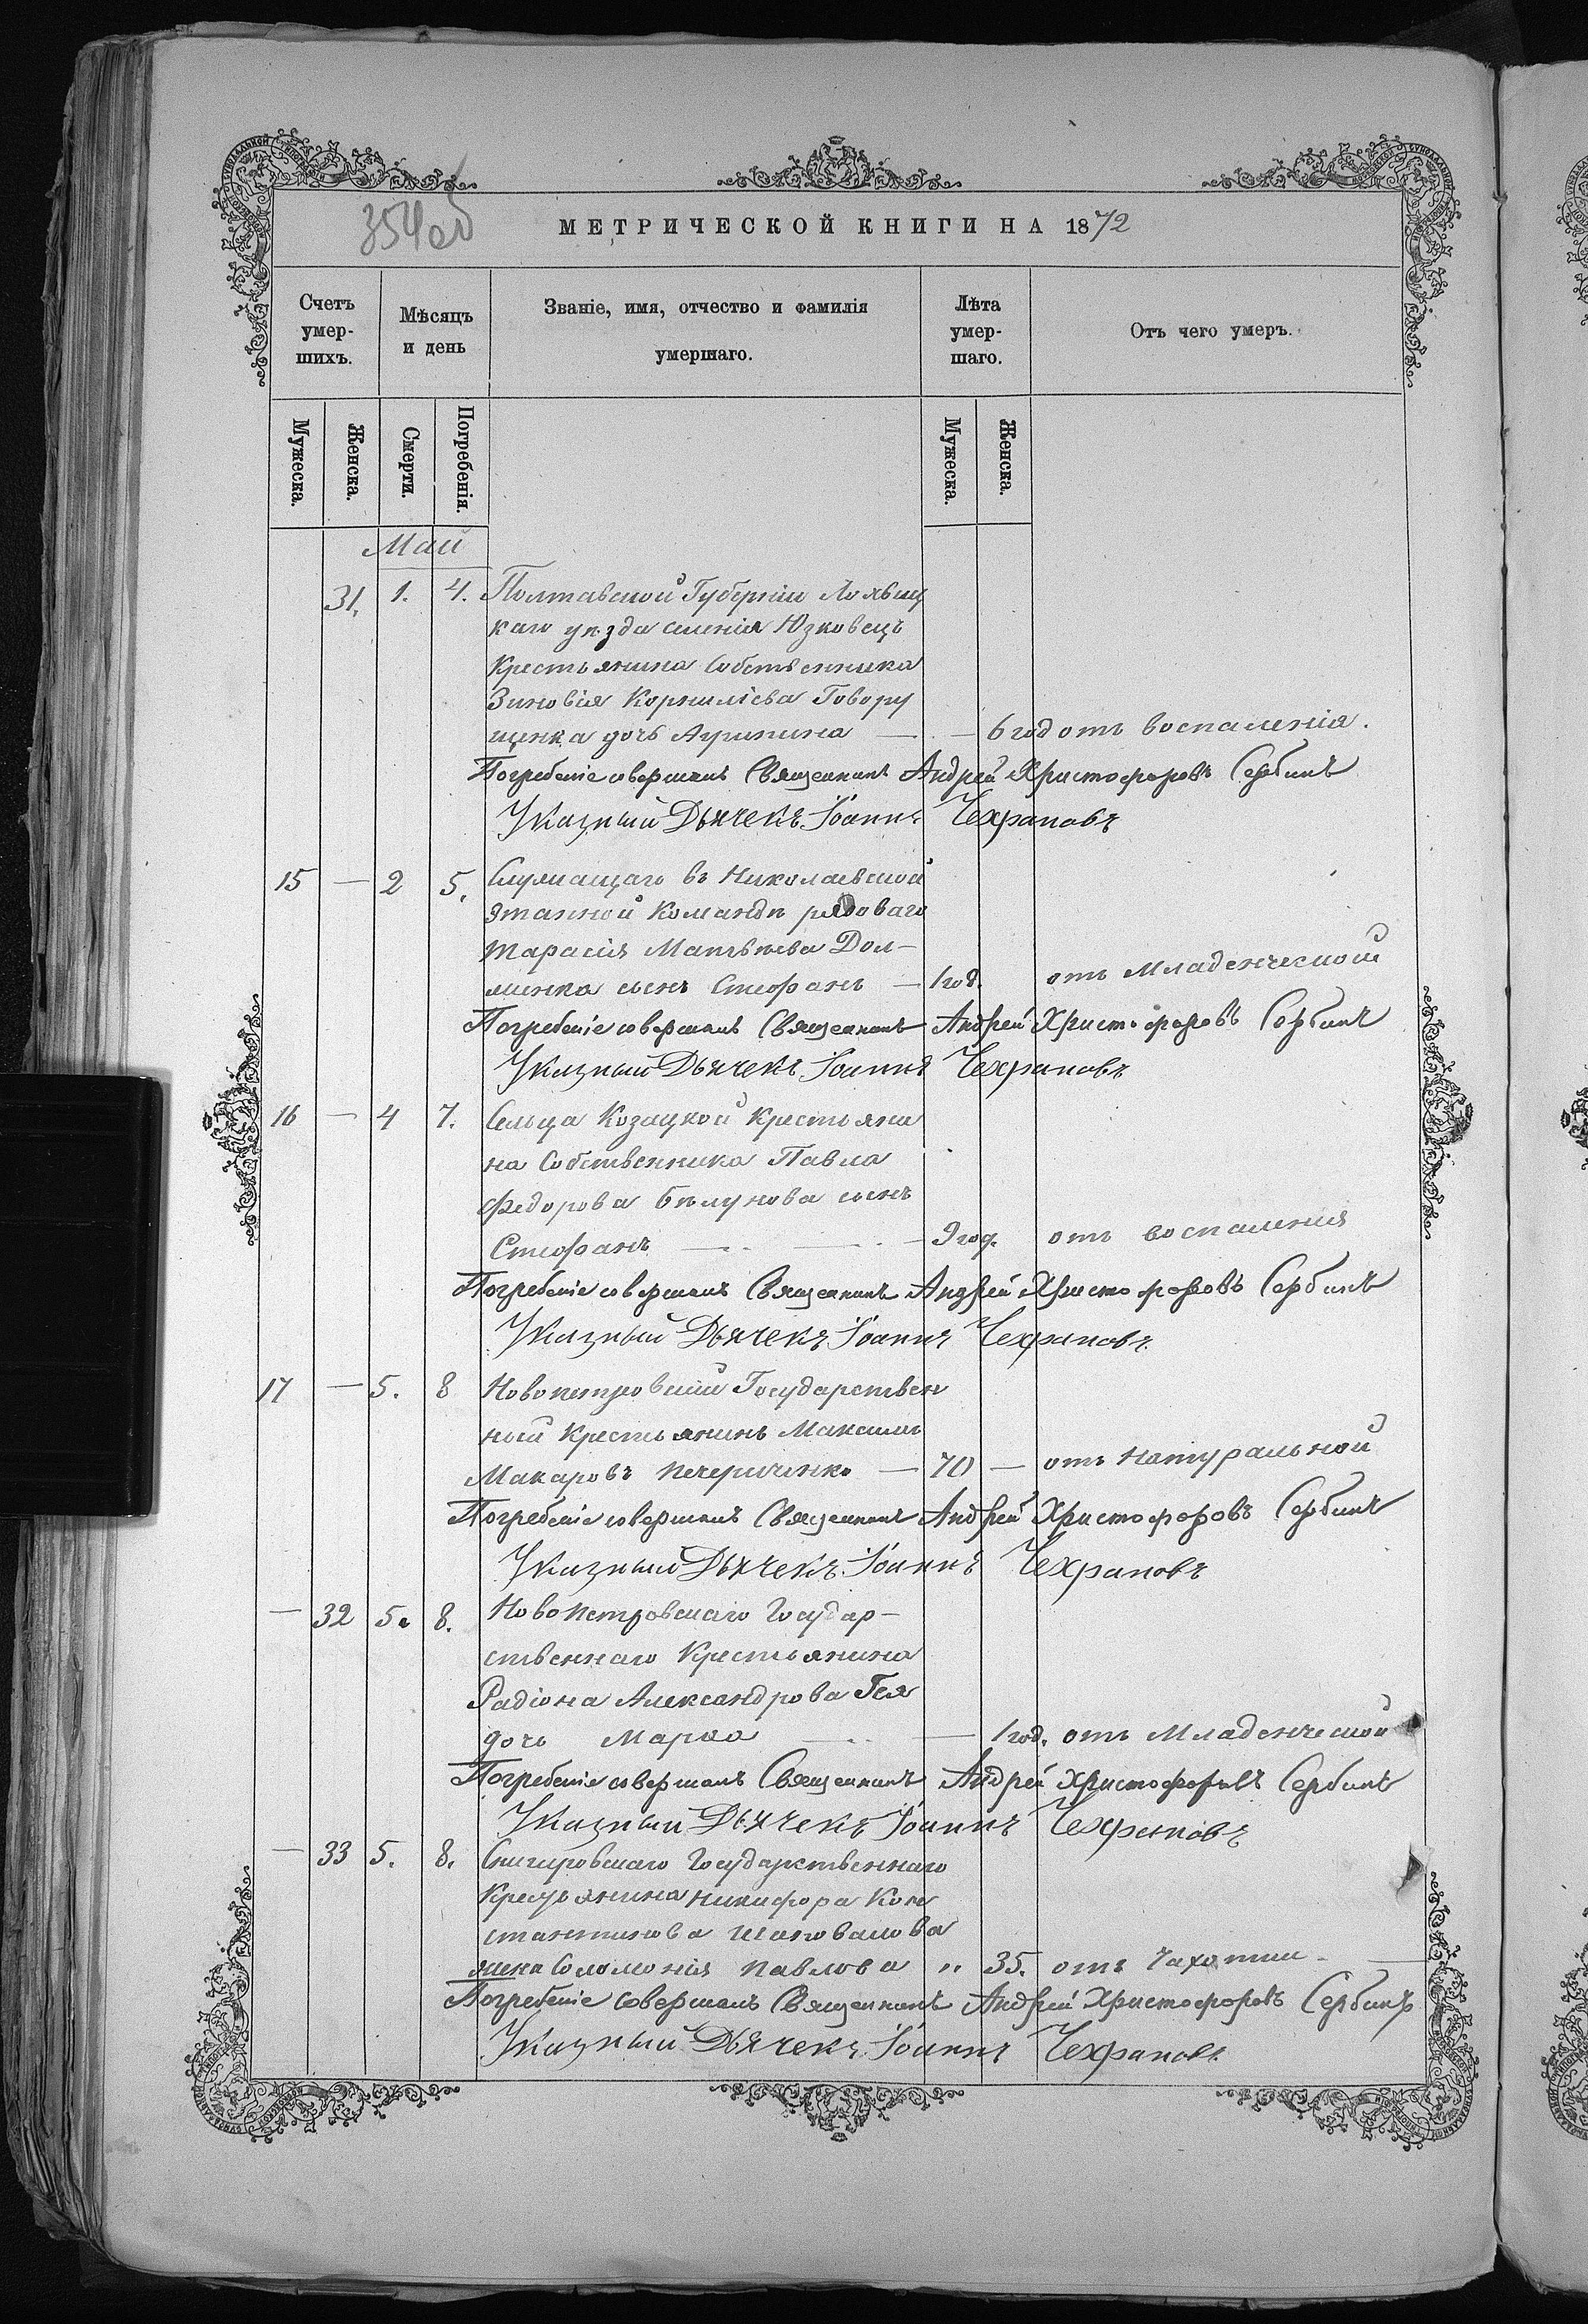 354об
МЕТРИЧЕСКОЙ КНИГИ НА 1872
Счетъ умер-шихъ.
Мѣсяцъ и день
Званіе, имя, отчество и фамилія умершаго.
Лѣта умер-шаго.
Отъ чего умеръ.
Мужеска.
Женска.
Смерти.
Погребенія.
Мужеска.
Женска.
Май
31. 1. 4. Полтавской Губерніи Лохвиц
каго уѣзда селенія Юзковецъ
Крестьянина Собственника
Зиновія Корниліева Говору
щенка дочь Агрипина — — 6 год отъ воспаленія.
Погребеніе совершалъ Священникъ Андрей Христофоровъ Сербинъ
Указный Дьячекъ Іоаннъ Чехрановъ
15 — 2 5. Служащаго въ Николаевской
этапной Командѣ рядоваго
Тарасія Матвѣева Дол-
женка сынъ Стефанъ — 1 год. отъ Младенческой
Погребеніе совершалъ Священникъ Андрей Христофоровъ Сербинъ
Указный Дьячекъ Іоаннъ Чехрановъ
16 — 4 7. Сельца Козацкой Крестьяни
на Собственника Павла
Федорова Бѣлунова сынъ
Стефанъ — — — 9 год. отъ воспаленія
Погребеніе совершалъ Священникъ Андрей Христофоровъ Сербинъ
Указный Дьячекъ Іоаннъ Чехрановъ
17 — 5. 8 Новопетровскій Государствен
ный Крестьянинъ Максимъ
Макаровъ Печериченко — 70 — отъ Натуральной
Погребеніе совершалъ Священникъ Андрей Христофоровъ Сербинъ
Указный Дьячекъ Іоаннъ Чехрановъ
— 32 5. 8. Новопетровскаго Государ-
ственнаго Крестьянина
Радіона Александрова Гея
дочь Марѳа — — 1 год. отъ Младенческой
Погребеніе совершалъ Священникъ Андрей Христофоровъ Сербинъ
Указный Дьячекъ Іоаннъ Чехрановъ
— 33 5. 8. Снигировскаго Государственнаго
Крестьянина Никифора Кон
стантинова Шаповалова
жена Соломонія Павлова „ 35. отъ Чахотки —
Погребеніе совершалъ Священникъ Андрей Христофоровъ Сербинъ
Указный Дьячекъ Іоаннъ Чехрановъ